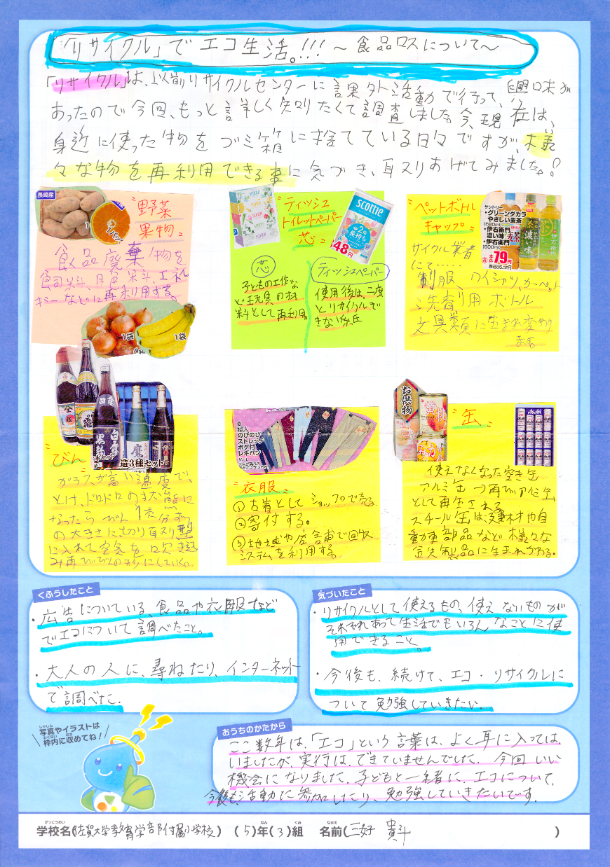 「リサイクル」でエコ生活。!!! ～食品ロスについて～
「リサイクル」は、以前リサイクルセンターに課外活動で行って、興味が
あったので今回、もっと詳しく知りたくて調査しました。今現在は、
身近に使った物をゴミ箱に捨てている日々ですが、様
々な物を再利用できる事に気づき、取りあげてみました。
長崎産
野菜
果物
食品廃棄物を
飼料、肥料、エネル
ギーなどに再利用する。
1袋
1袋
ティッシュ
トイレットペーパー
芯
scottie
48円
芯
子どもの工作な
ど玩具の材
料として再利用
ティッシュペーパー
使用後は、二度
とリサイクルで
きない為
ペットボトル
キャップ
サントリー
・グリーンダカラ
やさしい麦茶
・伊右衛門
濃い味
・伊右衛門
79円
リサイクル業者
にて
制服、ワイシャツ、カーペット
洗剤用ボトル
文具類に生まれ変わり
ます
びん
選3種セット
ガラスが高い温度で、
とけ、ドロドロの状態に
なったら、びん1本分
の大きさに切り取り型
に入れて空気を吹き込
み再びびんのまりにしている。
衣服
①古着としてショップで売る
②寄付する。
③地域や店舗で回収
システムを利用する。
缶
Asahi
使えなくなった空き缶
アルミ缶→再びアルミ缶
として再生される
スチール缶は、建材や自
動車部品など様々な
金属製品に生まれかわる。
くふうしたこと
・広告についている、食品や衣服など
でエコについて調べたこと。
・大人の人に、尋ねたり、インターネット
で調べた。
気づいたこと
・リサイクルとして使えるもの、使えないものが
それぞれあって生活でもいろんなことに使
用できること。
・今後も、続けて、エコ・リサイクルに
ついて勉強していきたい。
写真やイラストは
枠内に収めてね!
おうちのかたから
ここ数年は、「エコ」という言葉は、よく耳に入っては
いましたが、実行は、できていませんでした。今回いい
機会になりました。子どもと一緒に、エコについて
今後も活動に参加したり、勉強していきたいです。
学校名(佐賀大学教育学部附属小学校) (5)年(3)組 名前(三好 貴斗)